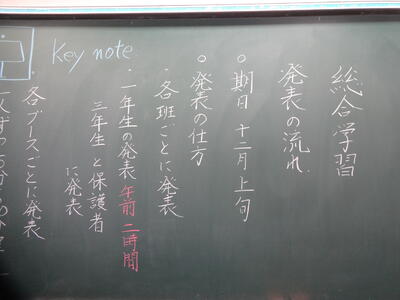 総合学習
発表の流れ
○ 期日 十二月上旬
○ 発表の仕方
・各班ごとに発表
・一年生の発表 午前 二時間
三年生と保護者
に発表
Key note
各ブースごとに発表